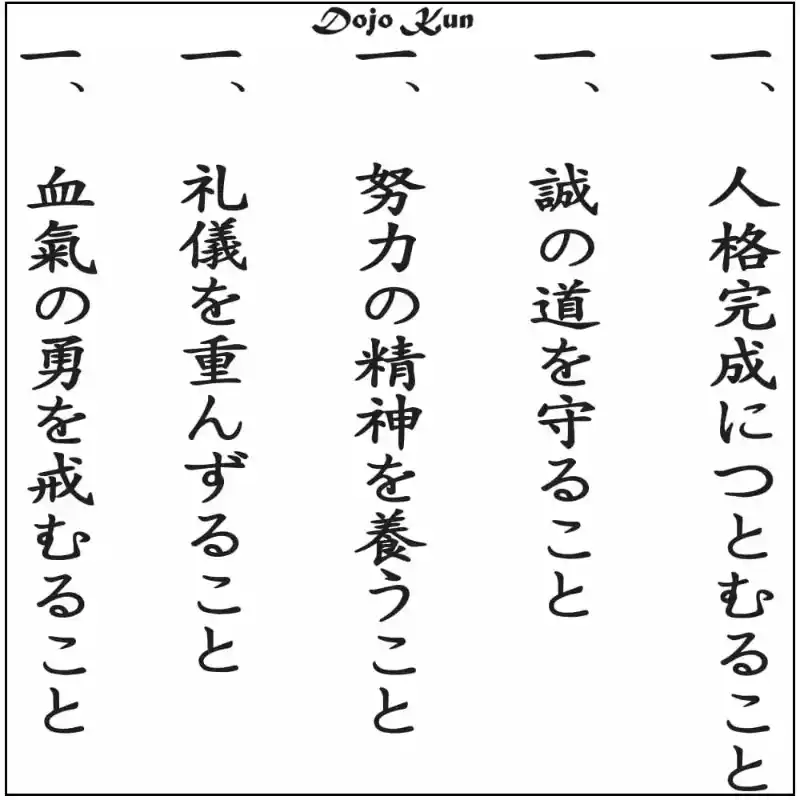 Dojo Kun
一、人格完成につとむること
一、誠の道を守ること
一、努力の精神を養うこと
一、礼儀を重んずること
一、血氣の勇を戒むること